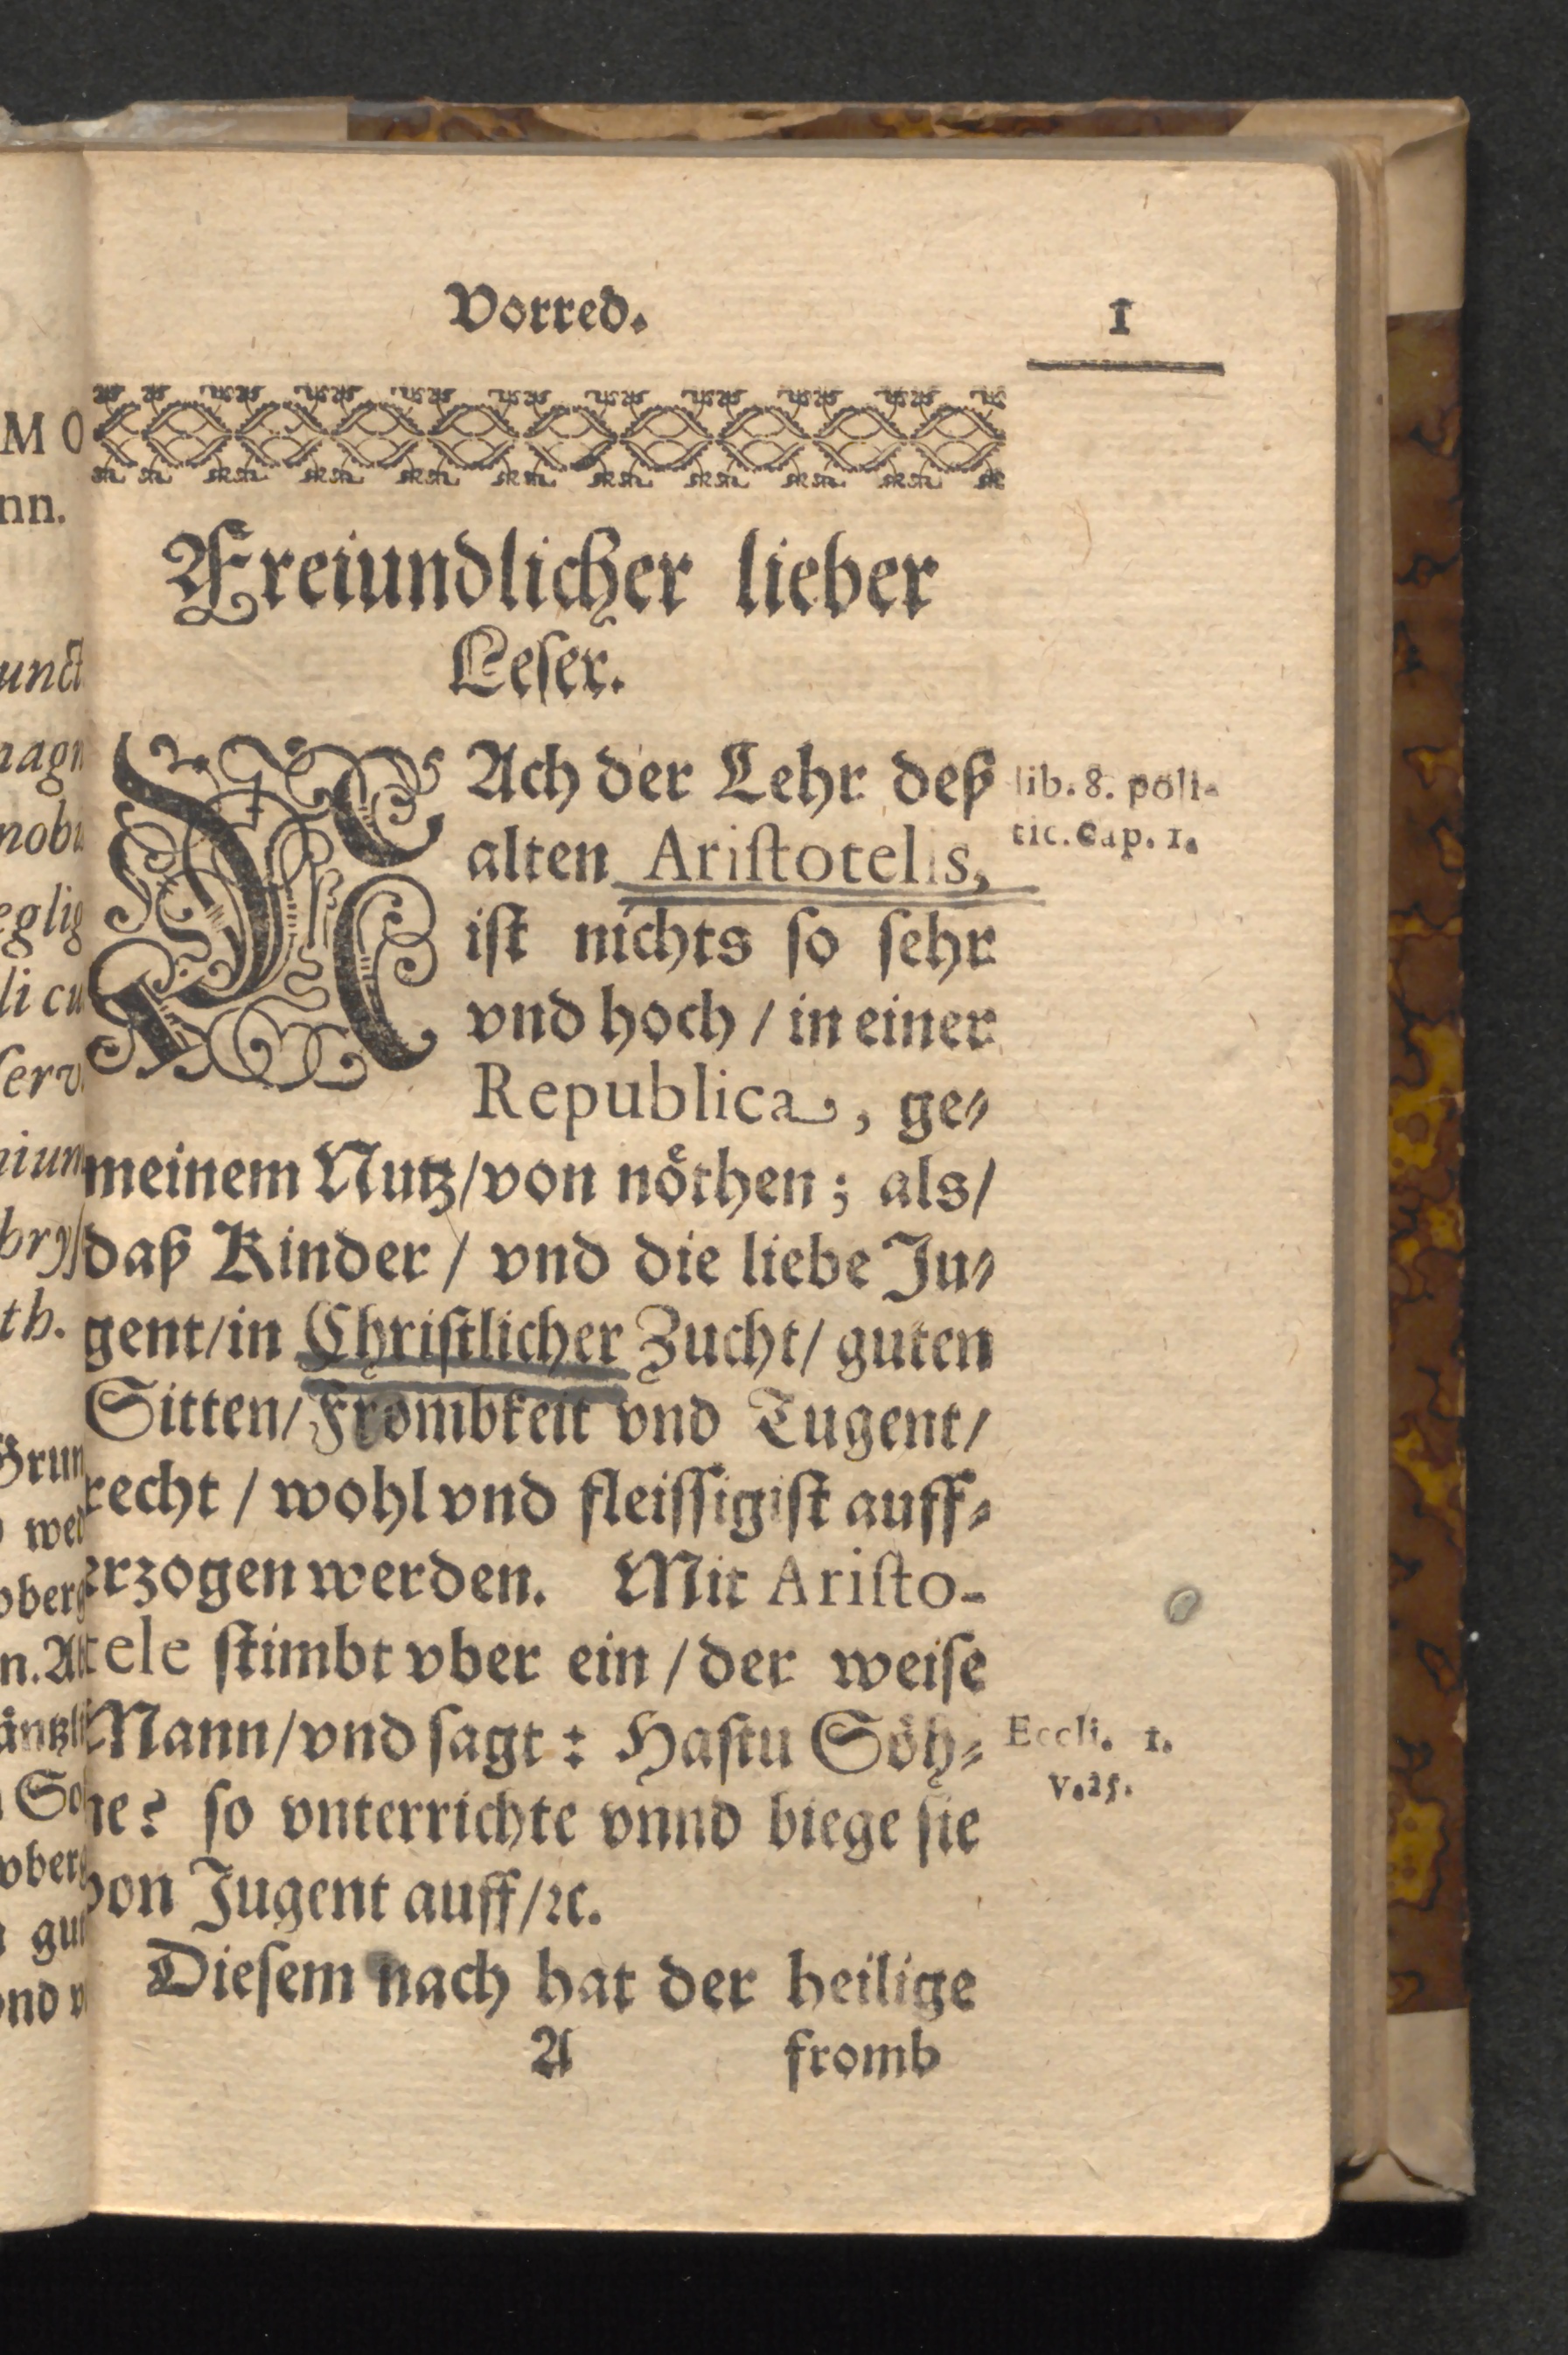 Vorred.
1
Freiundlicher lieber
Leser.
NAch der Lehr deß
alten Aristotelis,
ist nichts so sehr
vnd hoch / in einer
Republica, ge-
meinem Nutz/von nöthen; als/
daß Kinder / vnd die liebe Ju-
gent/in Christlicher Zucht/ guten
Sitten/Frombkeit vnd Tugent/
recht / wohl vnd fleissigist auff-
erzogen werden. Mit Aristo-
tele stimbt vber ein / der weise
Mann/vnd sagt: Hastu Söh-
ne? so vnterrichte vnnd biege sie
von Jugent auff/ꝛc.
Diesem nach hat der heilige
A fromb
lib. 8. poli-
tic. Cap. 1.
Eccli. 1.
v. 25.
M O
nn.
unct
nobi
eglig
li cu
serv
th.
wed
vberg
n. A
äntzli
So
vberg
gut
vnd